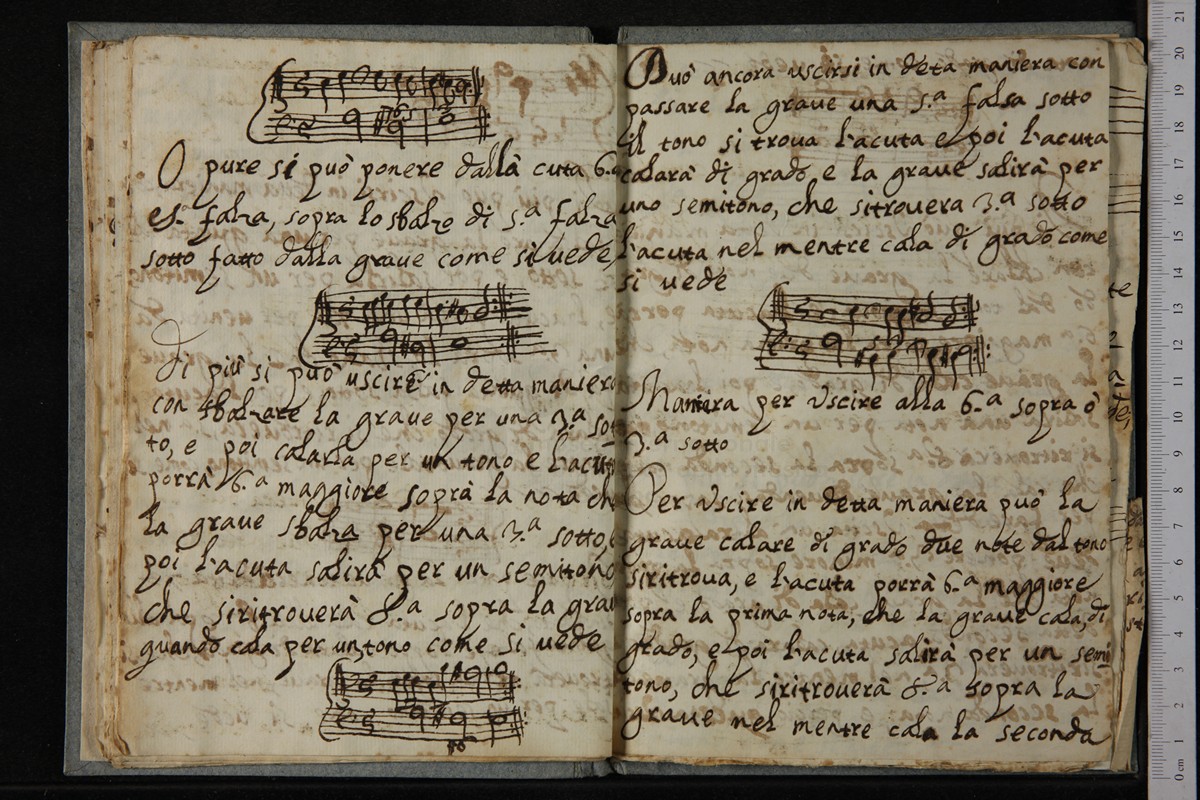 O pure si può ponere dallà cuta 6.a
e 5.a falza, sopra lo sbalzo di 5.a falza
sotto fatto dalla graue come si uede,
Di più si può uscire in detta maniera
con sbalzare la graue per una 3.a sot
to, e poi calarla per un tono e l'acuta
porrà 6.a maggiore soprà la nota che
la graue sbalza per una 3.a sotto, e
poi l'acuta salirà per un semitono
che siritrouerà 8.a sopra la graue
quando cala per un tono come si uede
Può ancora uscirsi in deta maniera con
passare la graue una 5.a falsa sotto
il tono si troua l'acuta e poi l'acuta
calarà di grado, e la graue salirà per
uno semitono, che sitrouera 3.a sotto
l'acuta nel mentre cala di grado come
si uede
Maniera per Uscire alla 6.a sopra ò
3.a sotto
Per Uscire in detta maniera può la
graue calare di grado due note dal tono
siritroua, e l'acuta porrà 6.a maggiore
sopra la prima nota, che la graue cala, di
grado, e poi l'acuta salirà per un semi
tono, che siritrouerà 8.a sopra la
graue nel mentre cala la seconda
te
0 cm 1 2 3 4 5 6 7 8 9 10 11 12 13 14 15 16 17 18 19 20 21